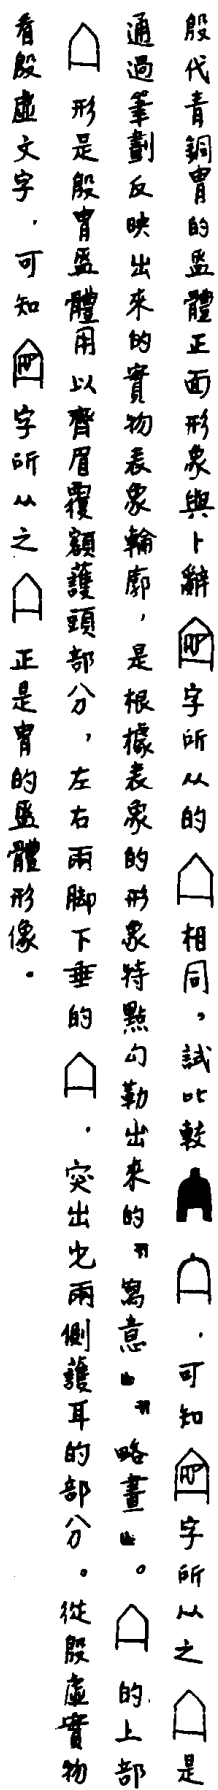 殷代青銅冑的盔體正面形象與卜辭字所从的相同，試比較，可知字所从之是
通過筆劃反映出來的實物表象輪廓，是根據表象的形象特點勾勒出來的『寫意』『略畫』。的上部
形是殷冑盔體用以齊眉覆額護頭部分，左右兩脚下垂的，突出它兩側護耳的部分。從殷虛實物
看殷虛文字，可知字所从之正是冑的盔體形像。